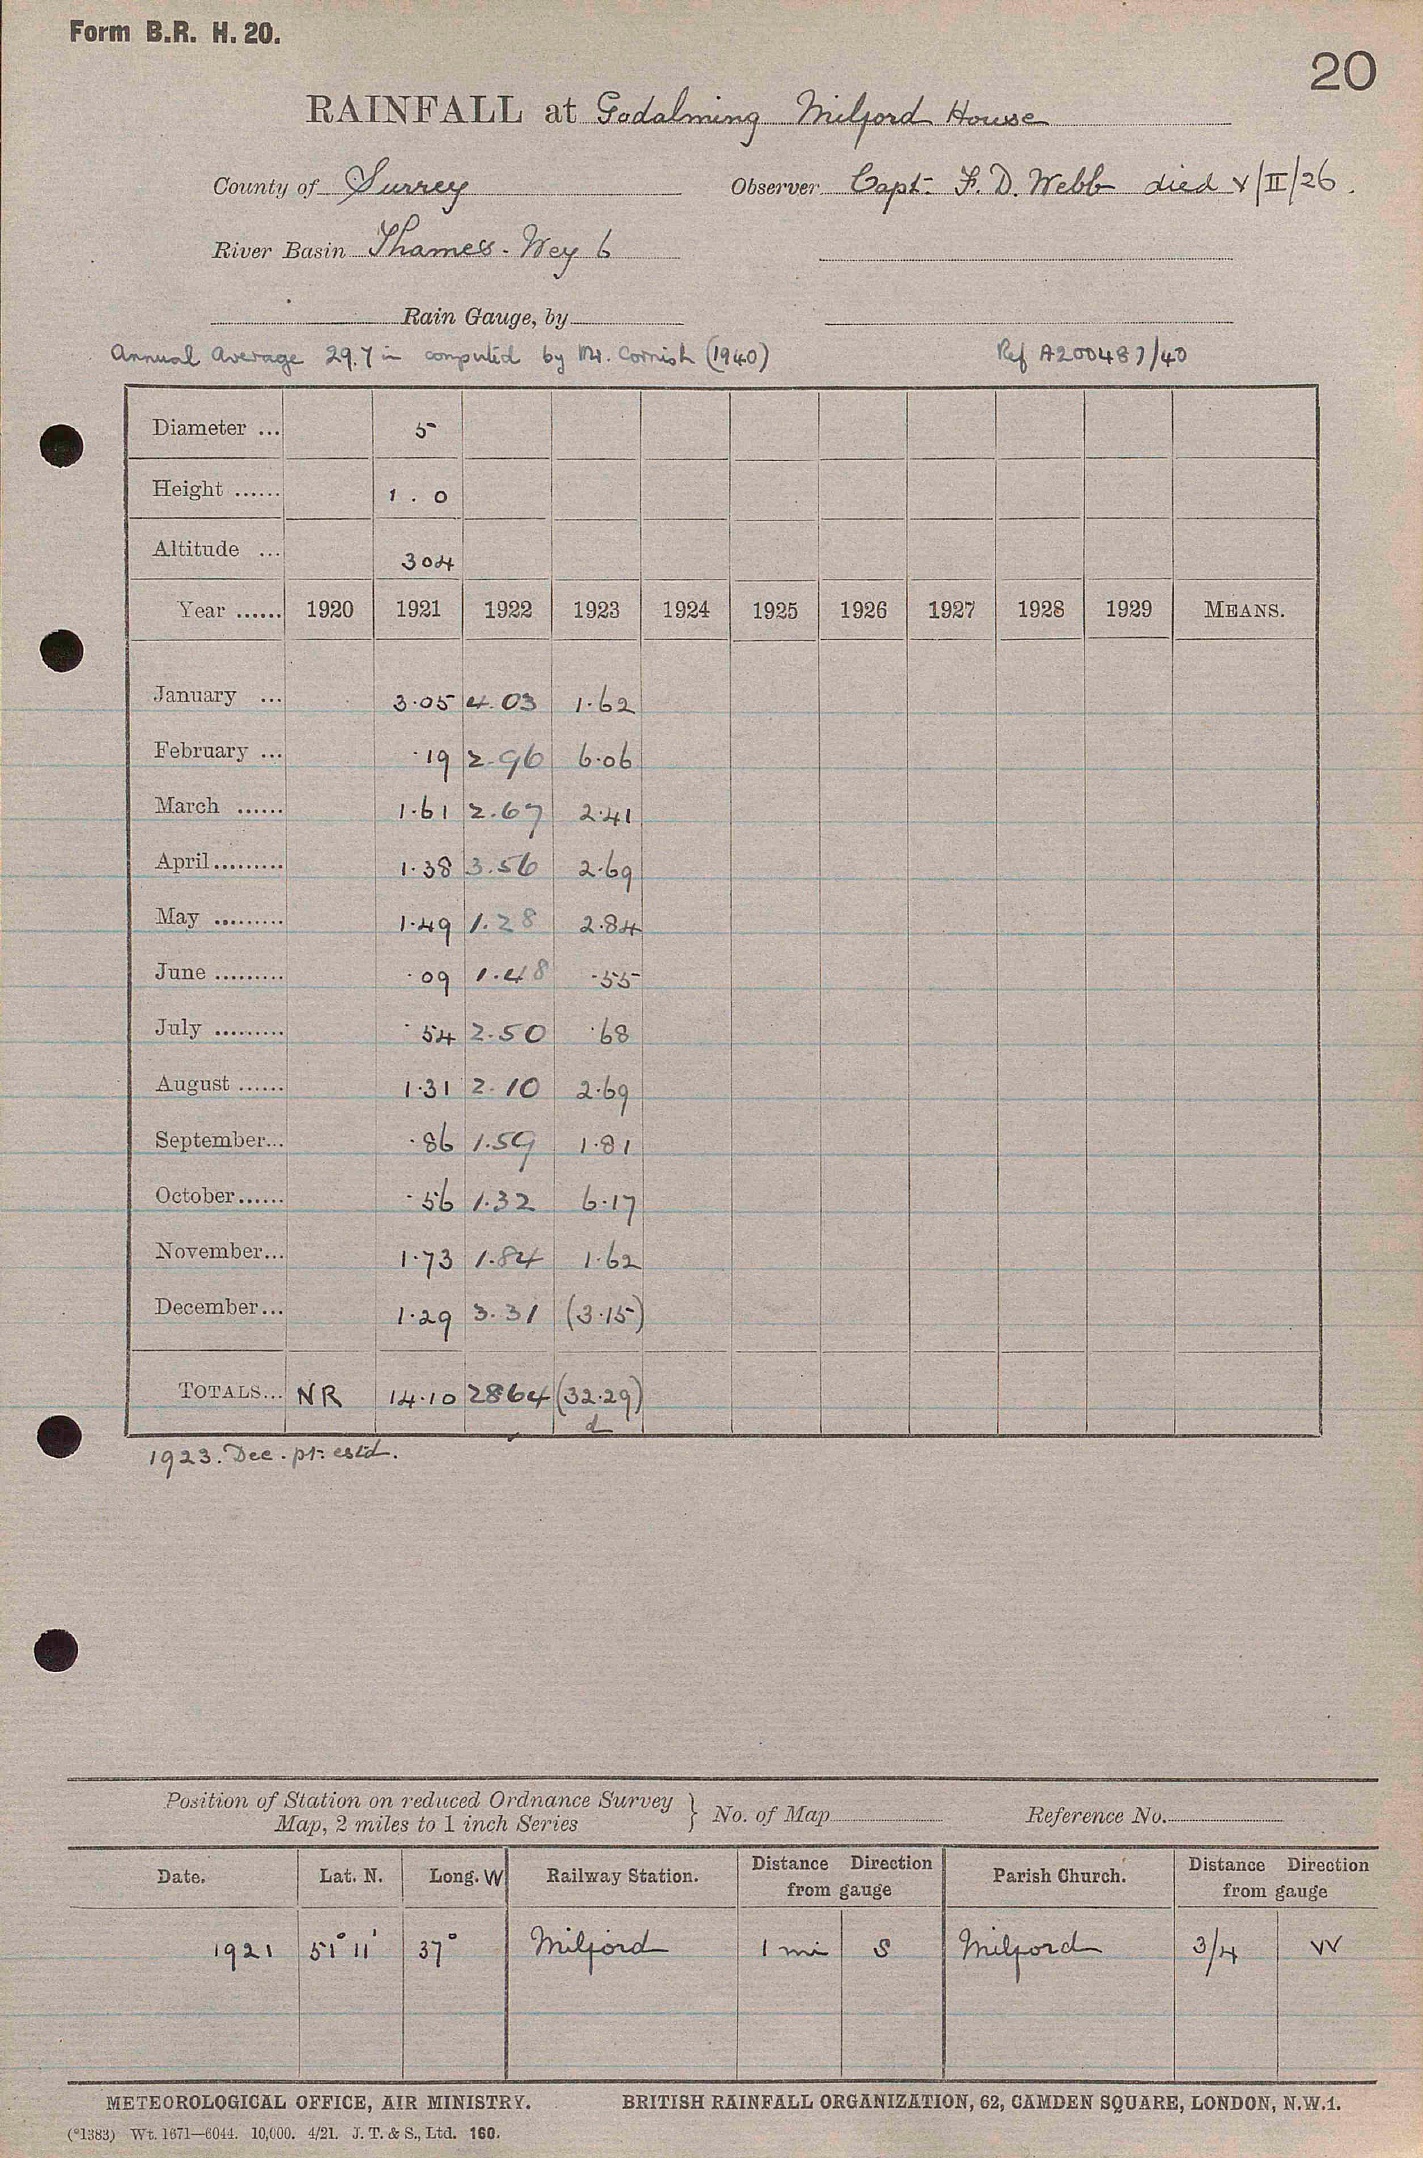 Form B.R. H. 20.
20
RAINFALL at Godalming Milford House
County of Surrey Observer Capt. F. D. Webb died V/II/26.
River Basin Thames - Wey 6
Rain Gauge, by
Annual Average 29.7 in computed by Mr. Cornish (1940) Ref A200487/40
Diameter ... 5
Height ...... 1.0
Altitude ... 304
Year ...... 1920 1921 1922 1923 1924 1925 1926 1927 1928 1929 MEANS.
January ... 3.05 4.03 1.62
February ... .19 2.96 6.06
March ...... 1.61 2.67 2.41
April ......... 1.38 3.56 2.69
May ......... 1.49 1.28 2.84
June ......... .09 1.48 .55
July ......... .54 2.50 .68
August ...... 1.31 2.10 2.69
September... .86 1.59 1.81
October...... .56 1.32 6.17
November... 1.73 1.84 1.62
December... 1.29 3.31 (3.15)
TOTALS... NR 14.10 2864 (32.29)
d
1923. Dec. pt. estd.
Position of Station on reduced Ordnance Survey
Map, 2 miles to 1 inch Series } No. of Map Reference No.
Date. Lat. N. Long. W Railway Station. Distance Direction from gauge Parish Church. Distance Direction from gauge
1921 51° 11' 37° Milford 1 mi S Milford 3/4 W
METEOROLOGICAL OFFICE, AIR MINISTRY. BRITISH RAINFALL ORGANIZATION, 62, CAMDEN SQUARE, LONDON, N.W.1.
(*1383) Wt. 1671—6044. 10,000. 4/21. J. T. & S., Ltd. 160.